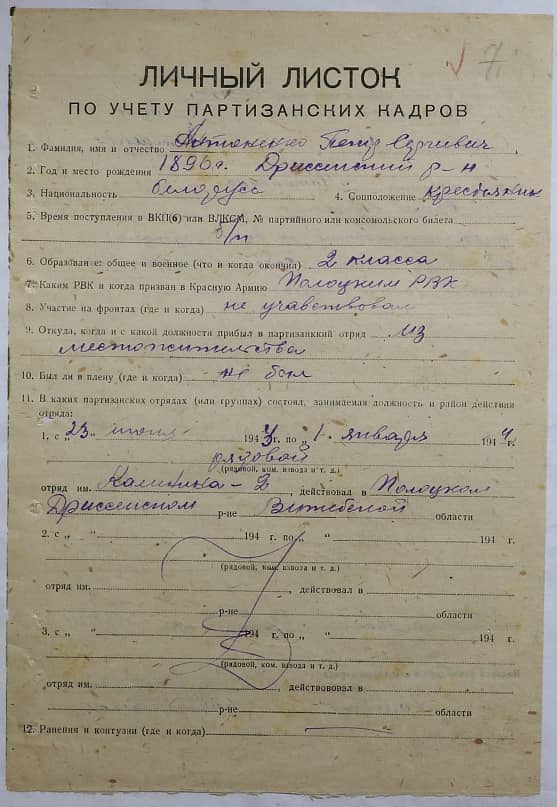 7
ЛИЧНЫЙ ЛИСТОК
ПО УЧЕТУ ПАРТИЗАНСКИХ КАДРОВ
1. Фамилия, имя и отчество Антоненко Петр Сергеевич
2. Год и место рождения 1896 г. Дриссенский р-н
3. Национальность белорусс 4. Соцположение крестьянин
5. Время поступления в ВКП(б) или ВЛКСМ, № партийного или комсомольского билета
б/п
6. Образование: общее и военное (что и когда окончил) 2 класса
7. Каким РВК и когда призван в Красную Армию Полоцким РВК
8. Участие на фронтах (где и когда) не учавствовал
9. Откуда, когда и с какой должности прибыл в партизанский отряд из
местожительства
10. Был ли в плену (где и когда) не был
11. В каких партизанских отрядах (или группах) состоял, занимаемая должность и район действия
отряда:
1. с „ 23 " июня 1943 г. по „ 1 " января 1944 г.
рядовой
(рядовой, ком. взвода и т. д.)
отряд им. Калинина-2, действовал в Полоцком
Дриссенском р-не Витебской области
2. с „ " 194 г. по „ " 194 г.
(рядовой, ком. взвода и т. д.)
отряд им. , действовал в
р-не области
3. с „ " 194 г. по „ " 194 г.
(рядовой, ком. взвода и т. д.)
отряд им. , действовал в
р-не области
12. Ранения и контузии (где и когда)